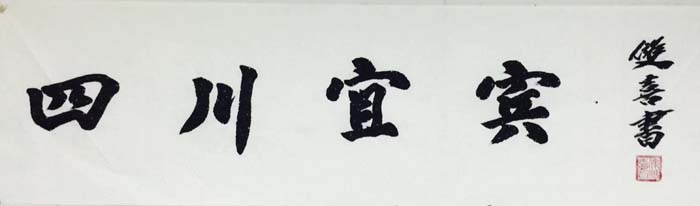 四川宜宾
喜書